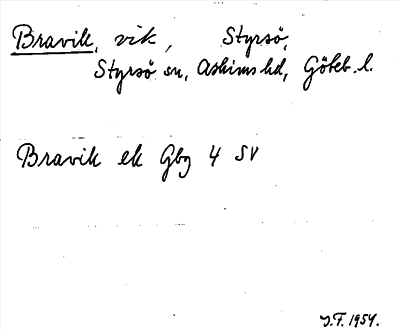 Bravik, vik, Styrsö,
Styrsö sn, Askims hd, Göteb. l.
Bravik ek Gbg 4 SV
J.F. 1954.